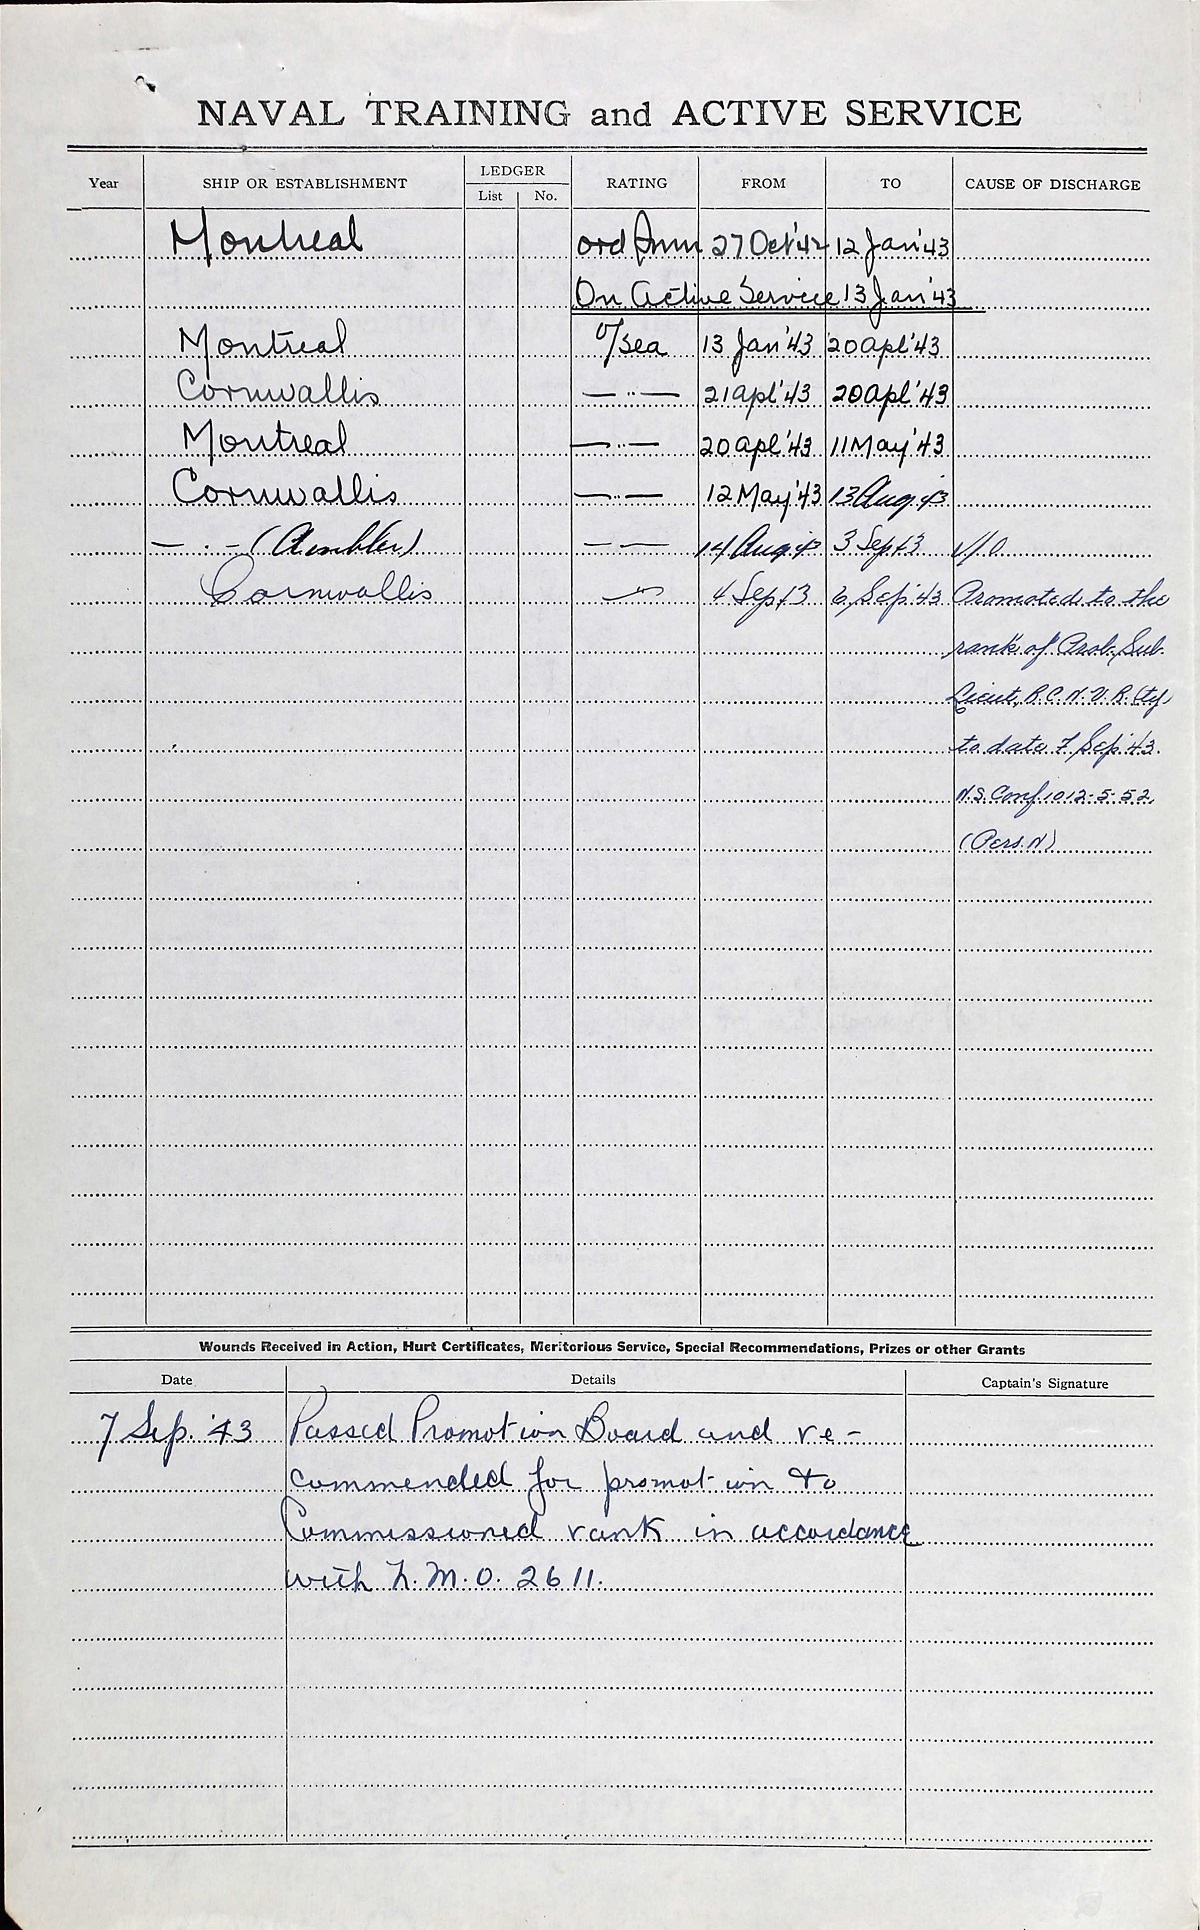 NAVAL TRAINING and ACTIVE SERVICE
Year SHIP OR ESTABLISHMENT LEDGER List No. RATING FROM TO CAUSE OF DISCHARGE
Montreal ord 27 Oct '42 12 Jan '43
On Active Service 13 Jan '43
Montreal O/Sea 13 Jan '43 20 Apl '43
Cornwallis — " — 21 Apl '43 20 Apl '43
Montreal — " — 20 Apl '43 11 May '43
Cornwallis — " — 12 May '43 13 Aug 43
— " — (Ambler) — — 14 Aug 43 3 Sep 43
Cornwallis — " — 4 Sep 43 6 Sep '43 Promoted to the
rank of Prob. Sub.
Lieut, R.C.N.V.R. (Ty)
to date 7 Sep '43.
N.S. Conf 1012-5-52,
(Pers. N)
Wounds Received in Action, Hurt Certificates, Meritorious Service, Special Recommendations, Prizes or other Grants
Date Details Captain's Signature
7 Sep. '43 Passed Promotion Board and re-
commended for promotion to
Commissioned rank in accordance
with N.M.O. 2611.